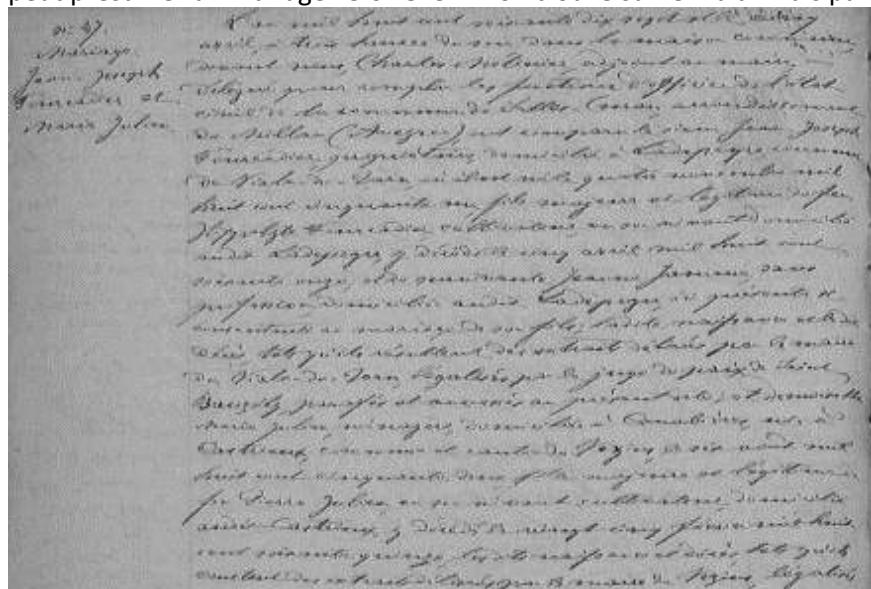 n: 47.
Mariage
Jean Joseph
Fourcadier et
Marie Julien
L'an mil huit cent soixante dix sept et le
avril, à trois heures du soir, dans la maison commune
devant nous, Charles Molinier adjoint au maire
délégué pour remplir les fonctions d'officier de l'état
civil de la commune de Salles Curan, arrondissement
de Millau (Aveyron) ont comparu le sieur Jean Joseph
Fourcadier, propriétaire, domicilié à Ladepeyre commune
de Viala-du-Tarn, où il est né le quatre novembre mil
huit cent cinquante un, fils majeur et légitime de feu
Hippolyte Fourcadier cultivateur, en son vivant domicilié
audit Ladepeyre y décédé le cinq avril mil huit cent
soixante onze, et de survivante Jeanne sans
profession, domiciliée audit Ladepeyre, ici présente et
consentante au mariage de son fils, ladite naissance et le dit
décès tels qu'ils résultent des extraits délivrés par le maire
du Viala-du-Tarn légalisés par le juge de paix de Saint
Beauzély, paraphés et annexés au présent acte; et demoiselle
Marie Julien, ménagère, domiciliée à née à
commune et canton de Vezins, le six août mil
huit cent cinquante deux fille majeure et légitime
feu Pierre Julien, en son vivant cultivateur, domicilié
audit y décédé le vingt cinq mil huit
cent soixante quinze, les dits naissance et décès, tels qu'ils
constent des extraits délivrés par le maire de Vezins, légalisés